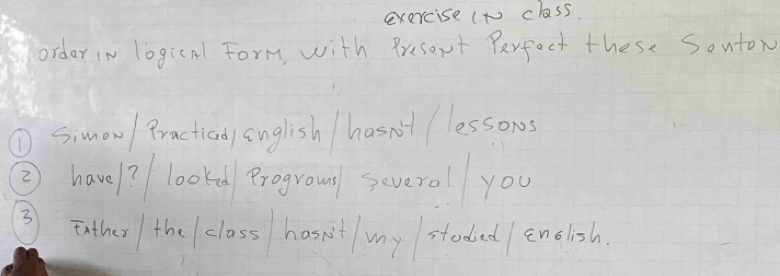 exercise in class.
order in logical Form, with Present Perfect these Senten
① Simon / Practiced / English / hasn't / lessons
② have / ? / looked / Programs / several / you
③ Father / the / class / hasn't / my / studied / English.